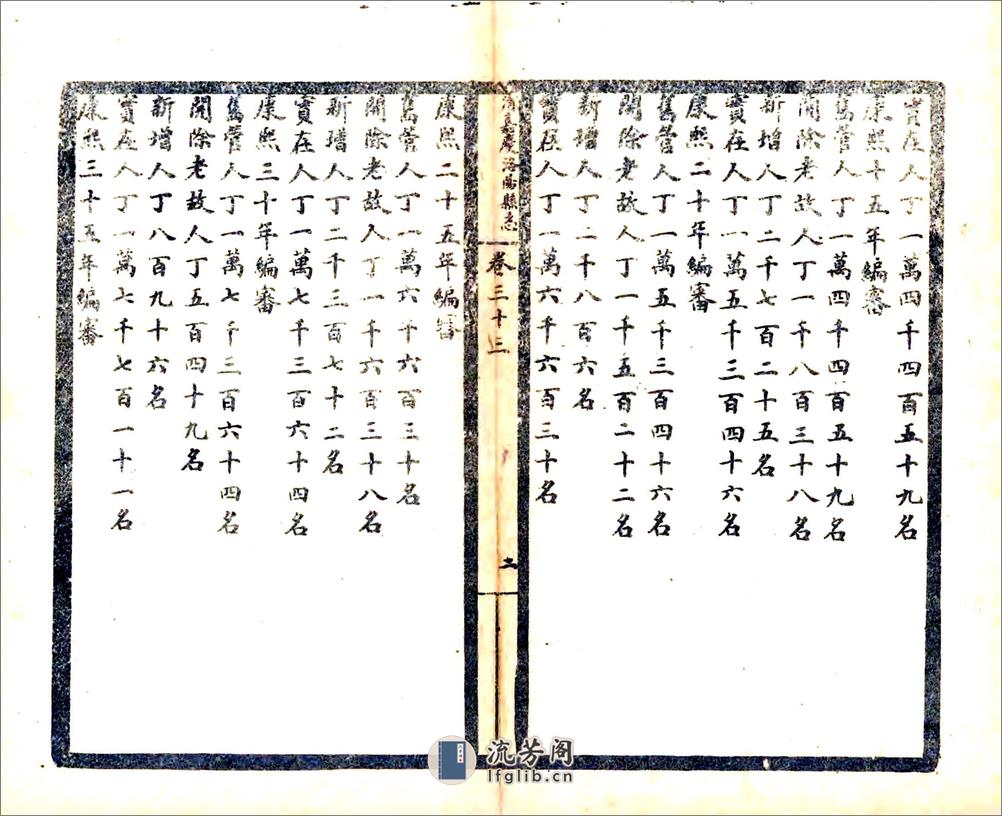 實在人丁一萬四千四百五十九名
康熙十五年編審
舊管人丁一萬四千四百五十九名
開除老故人丁一千八百三十八名
新增人丁二千七百二十五名
實在人丁一萬五千三百四十六名
康熙二十年編審
舊管人丁一萬五千三百四十六名
開除老故人丁一千五百二十二名
新增人丁二千八百六名
實在人丁一萬六千六百三十名
清嘉慶洛陽縣志
卷三十三
康熙二十五年編審
舊管人丁一萬六千六百三十名
開除老故人丁一千六百三十八名
新增人丁二千三百七十二名
實在人丁一萬七千三百六十四名
康熙三十年編審
舊管人丁一萬七千三百六十四名
開除老故人丁五百四十九名
新增人丁八百九十六名
實在人丁一萬七千七百一十一名
康熙三十五年編審
流芳阁
lfglib.cn